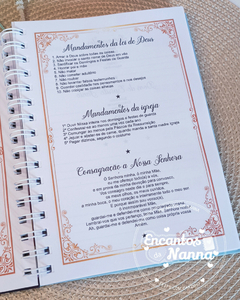 Mandamentos da lei de Deus
1. Amar a Deus sobre todas as coisas
2. Não tomar o santo nome de Deus em vão
3. Santificar os Domingos e Festas de Guarda
4. Honrar pai e mãe
5. Não matar
6. Não cometer adultério
7. Não roubar
8. Não levantar falsos testemunhos
9. Guardar castidade nos pensamentos e nos desejos
10. Não cobiçar as coisas alheias
Mandamentos da igreja
1º Ouvir Missa inteira nos domingos e festas de guarda
2º Confessar-se ao menos uma vez cada ano
3º Comungar ao menos pela Páscoa da Ressurreição
4º Jejuar e abster-se de carne, quando manda a santa madre Igreja
5º Pagar dízimos, segundo o costume
Consagração a Nossa Senhora
Ó Senhora minha, ó minha Mãe,
eu me ofereço todo(a) a vós,
e em prova da minha devoção para convosco,
vos consagro neste dia e para sempre,
os meus olhos, os meus ouvidos,
a minha boca, o meu coração e inteiramente todo o meu ser.
E porque assim sou vosso(a),
ó incomparável Mãe,
guardai-me e defendei-me como propriedade vossa.
Lembrai-vos que vos pertenço, terna Mãe, Senhora nossa.
Ah, guardai-me e defendei-me como coisa própria vossa.
Amém.
Encantos
da
Nanna